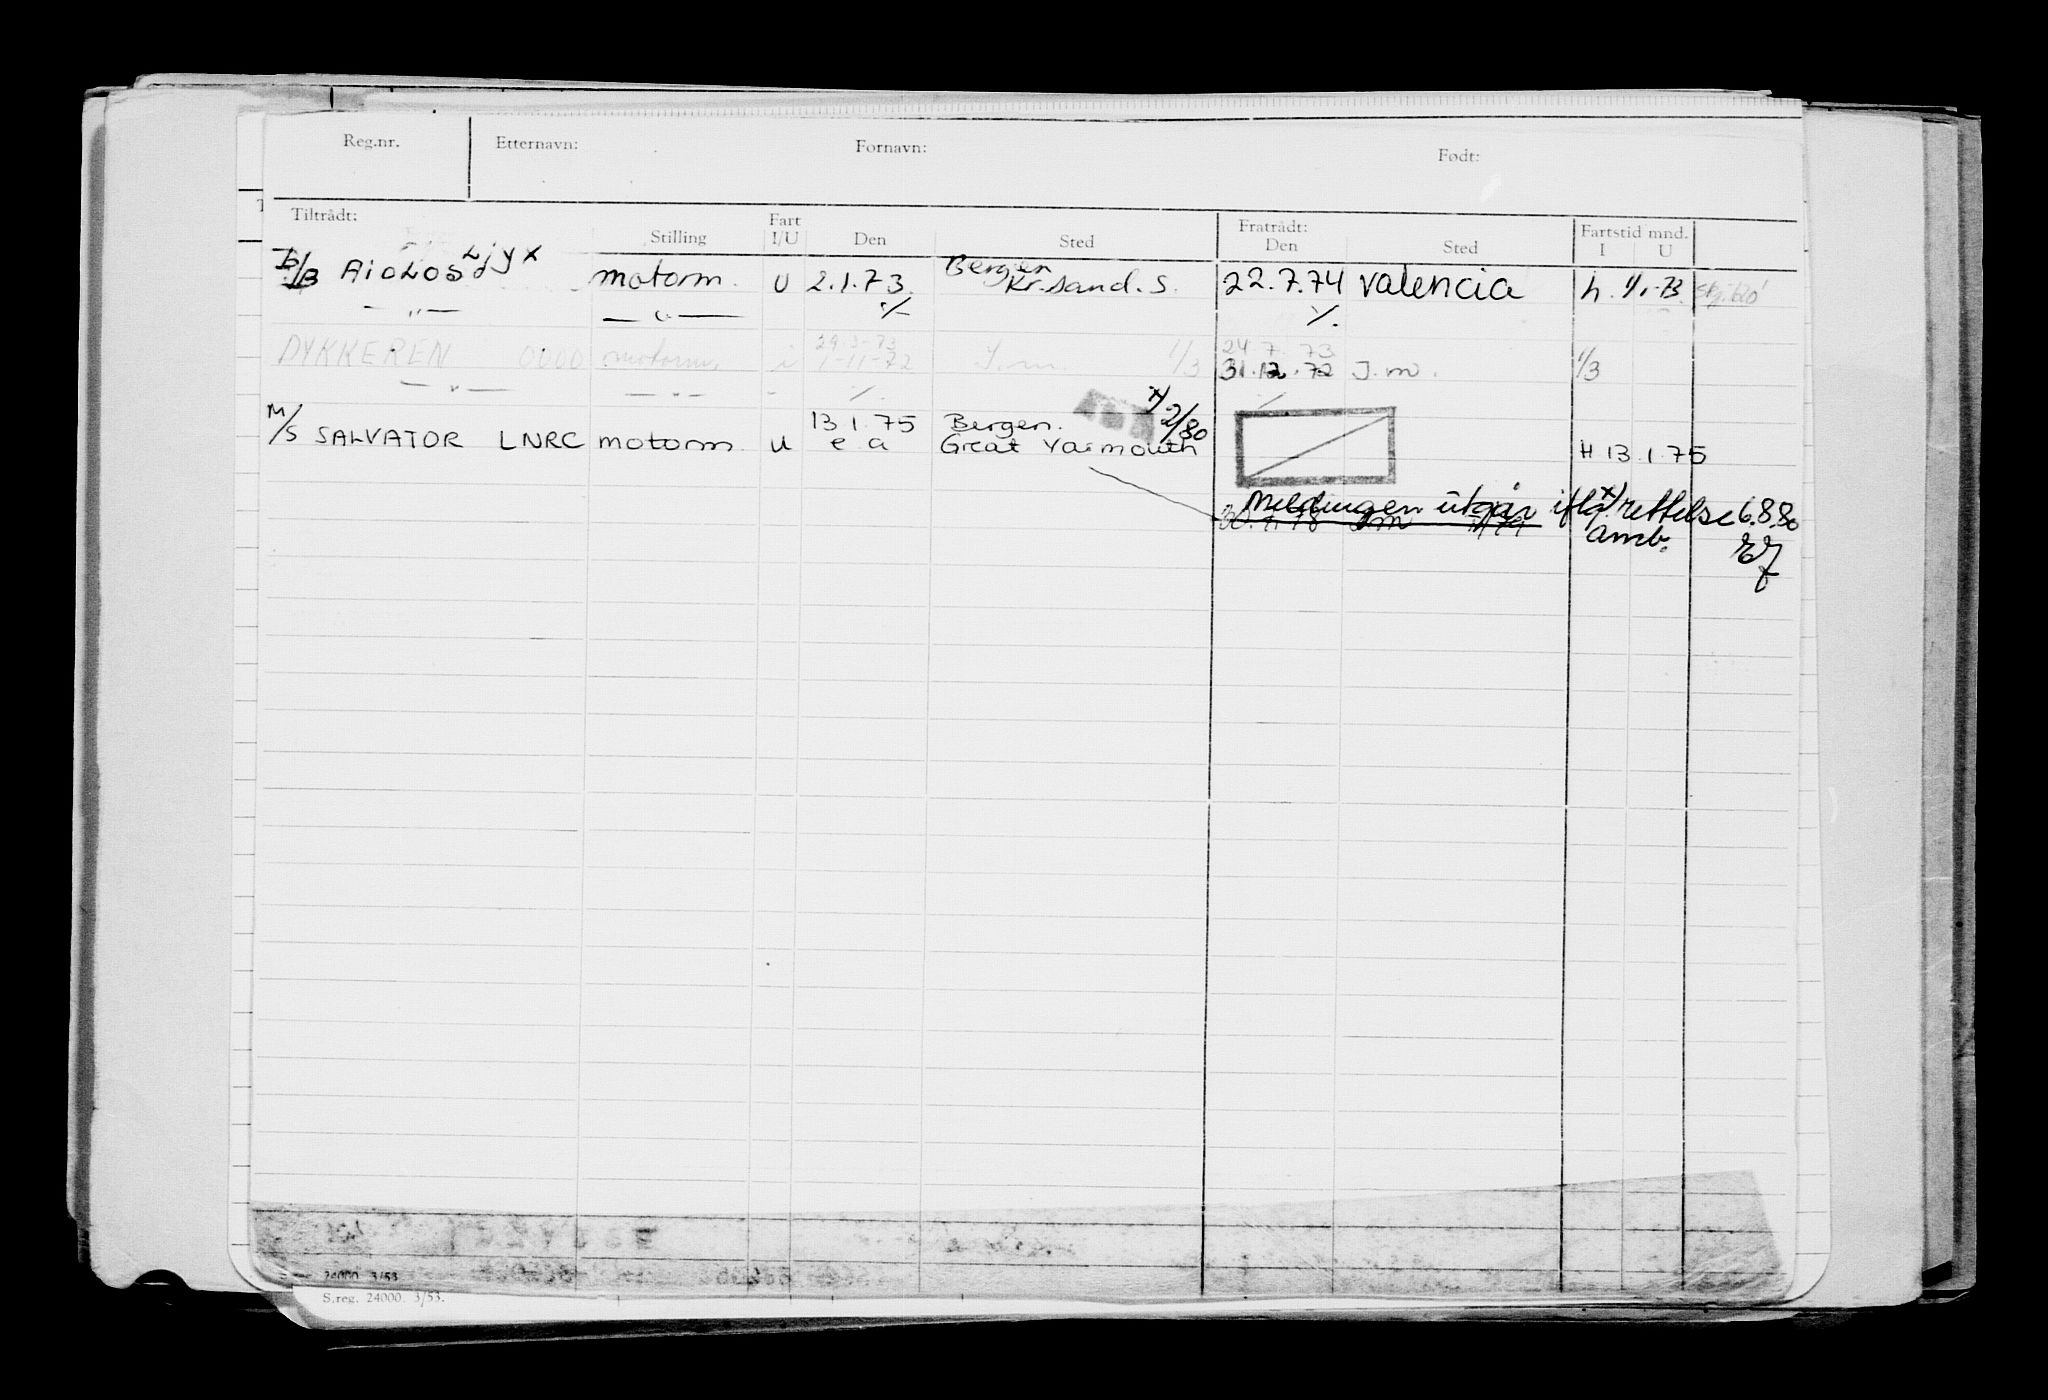 Reg.nr. Etternavn: Fornavn: Født:
Tiltrådt: Stilling Fart I/U Den Sted Fratrådt: Den Sted Fartstid mnd. I U
Bergen
AiOLOS Ljyx motorm. U 2.1.73. Kr.sand.S. 22.7.74 Valencia h. 1/1-73
— „ — — „ — ⁒ ⁒
29-3-73 24 7 73
DYKKEREN OOOO motorm. i 1-11-72 J.m. 1/3 31.12.72 J.m. 1/3
— „ — — „ — - ⁒
x/ 2/80
13.1.75 Bergen.
M/S SALVATOR LNRC motorm. U e.a Great Yarmouth H 13.1.75
Meldingen utgår iflg x) rettelse 6.8.80
Amb.
24000 3/53
S.reg. 24000. 3/53.